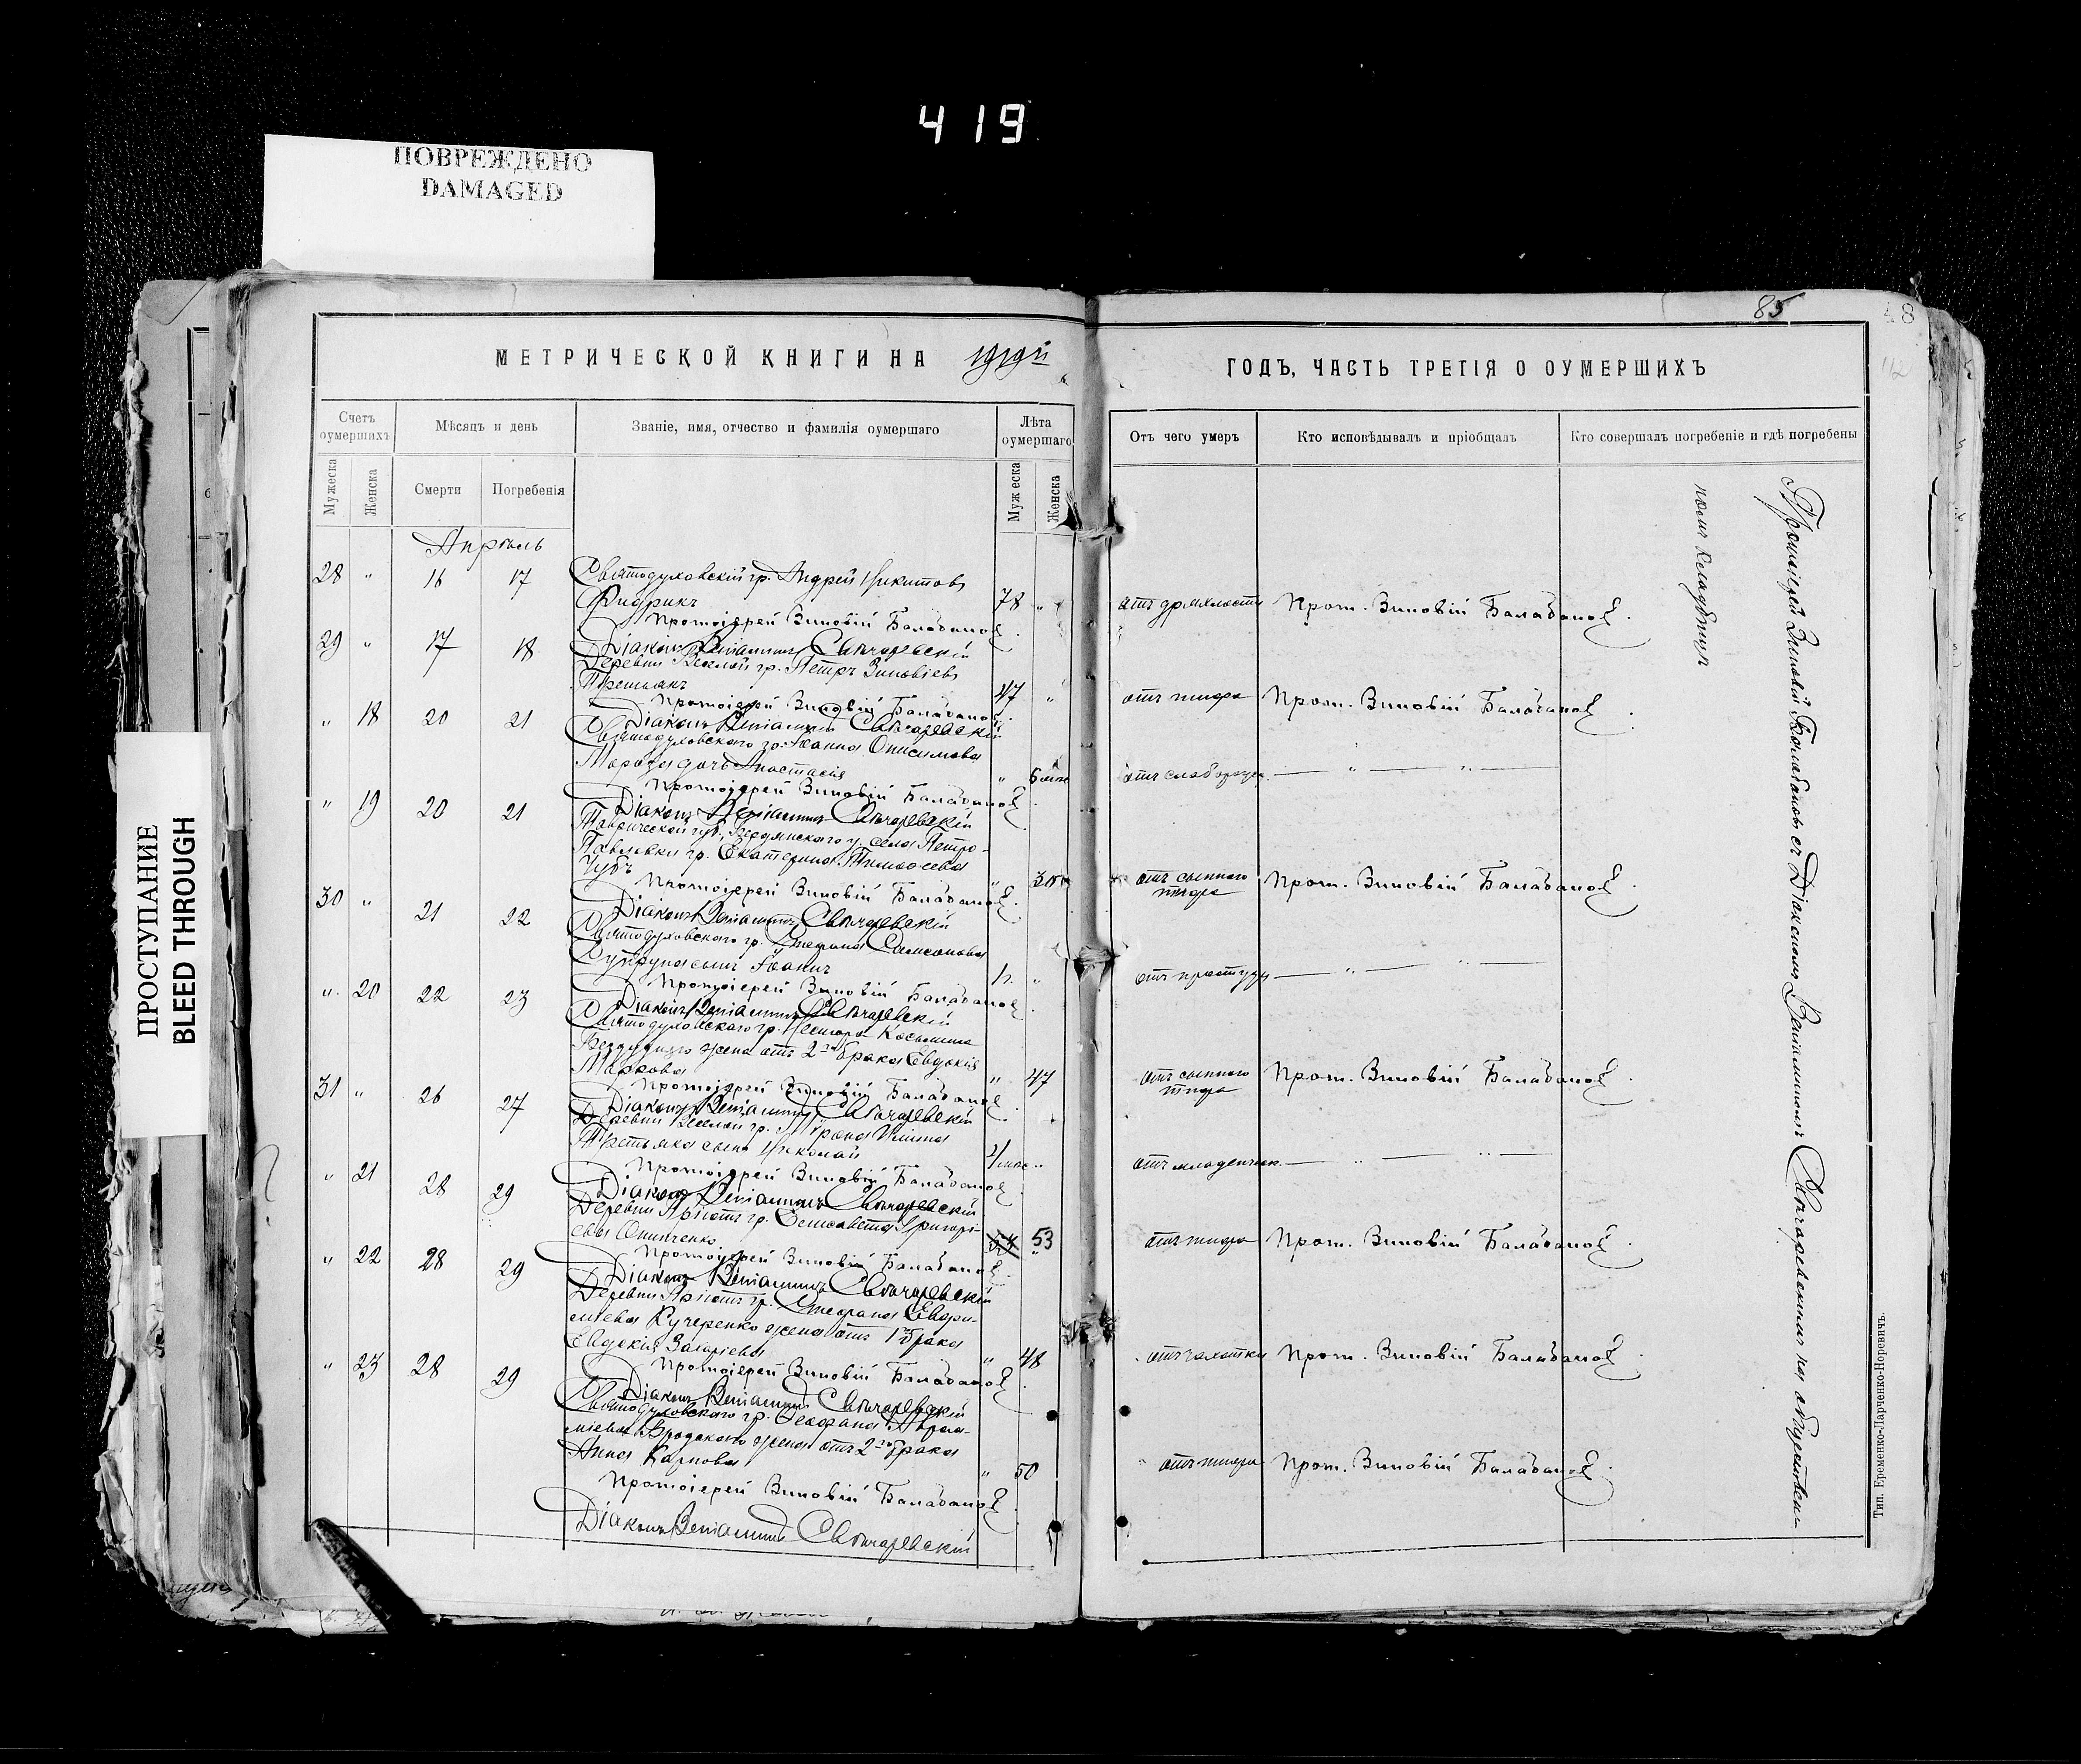 419
ПОВРЕЖДЕНО
DAMAGED
ПРОСТУПАНИЕ
BLEED THROUGH
85
48
МЕТРИЧЕСКОЙ КНИГИ НА 1919й
ГОДЪ, ЧАСТЬ ТРЕТІЯ О ОУМЕРШИХЪ
Счетъ оумершихъ
Мужеска
Женска
Мѣсяцъ и день
Смерти
Погребенія
Званіе, имя, отчество и фамилія оумершаго
Лѣта оумершаго
Мужеска
Женска
Отъ чего умеръ
Кто исповѣдывалъ и пріобщалъ
Кто совершалъ погребеніе и гдѣ погребены
Апрѣль
28 " 16 17 Святодуховскій гр. Андрей Никитовъ
78 " отъ дряхлости Прот. Зиновій Балабановъ.
Протоіерей Зиновій Балабановъ.
Діаконъ Веніаминъ Свѣчаревскій
29 " 17 18 Деревни Веселой гр. Петръ Зиновіевъ
Третьякъ 47 " отъ тифа Прот. Зиновій Балабановъ.
Протоіерей Зиновій Балабановъ.
Діаконъ Веніаминъ Свѣчаревскій
" 18 20 21 Святодуховскаго гр. Іоанна Онисимова
Мороза дочь Анастасія " 6 отъ — " — " —
Протоіерей Зиновій Балабановъ.
Діаконъ Веніаминъ Свѣчаревскій
" 19 20 21 Таврической губ., Бердянскаго у. села Петро-
Павловки гр. Екатерина Тимоѳеева
Чубъ " 30 отъ сыпного тифа Прот. Зиновій Балабановъ.
Протоіерей Зиновій Балабановъ.
Діаконъ Веніаминъ Свѣчаревскій
30 " 21 22 Святодуховскаго гр. Стефана Самсонова
Супруна сынъ Іоаннъ 1г. " отъ простуды — " — " —
Протоіерей Зиновій Балабановъ.
Діаконъ Веніаминъ Свѣчаревскій
" 20 22 23 Святодуховскаго гр. Нестора Косьмина
жена отъ 2го брака Евдокія
Маркова " 47 отъ сыпного тифа Прот. Зиновій Балабановъ.
Протоіерей Зиновій Балабановъ.
Діаконъ Веніаминъ Свѣчаревскій
31 " 26 27 Деревни Веселой гр.
Третьяка сынъ Николай " отъ младенческ. — " — " —
Протоіерей Зиновій Балабановъ.
Діаконъ Веніаминъ Свѣчаревскій
" 21 28 29 Деревни гр. Елисавета Григорі-
ева Онипченко 53 отъ тифа Прот. Зиновій Балабановъ.
Протоіерей Зиновій Балабановъ.
Діаконъ Веніаминъ Свѣчаревскій
" 22 28 29 Деревни гр. Стефана Евфи-
міева Кучеренко жена отъ 1го брака
Евдокія Захаріева " 48 отъ чахотки Прот. Зиновій Балабановъ.
Протоіерей Зиновій Балабановъ.
Діаконъ Веніаминъ Свѣчаревскій
" 23 28 29 Святодуховскаго гр. Авра-
міева жена отъ 2го брака
Анна Карпова " 50 отъ тифа Прот. Зиновій Балабановъ.
Протоіерей Зиновій Балабановъ.
Діаконъ Веніаминъ Свѣчаревскій
Протоіерей Зиновій Балабановъ съ Діакономъ Веніаминомъ Свѣчаревскимъ на общественномъ кладбищѣ
Тип. Еременко-Ларченко-Норевичъ.